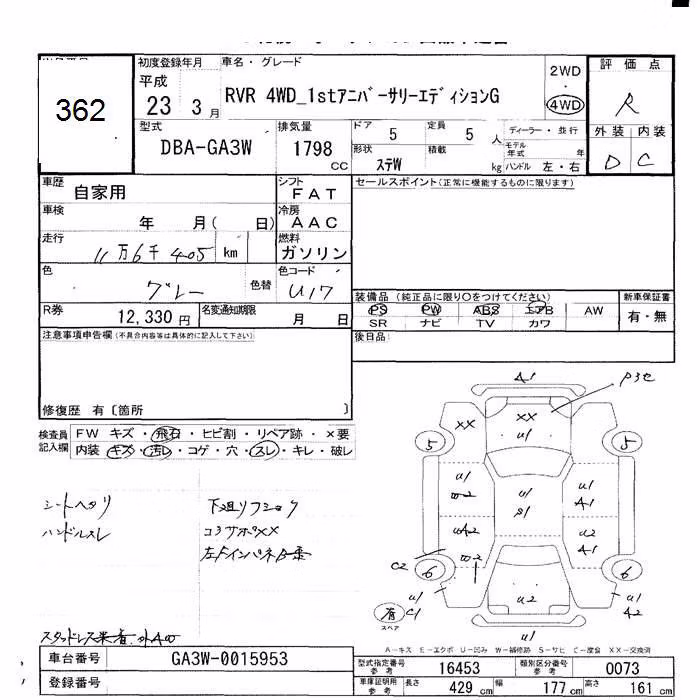 362
初度登録年月
平成
23 3月
車名・グレード
RVR 4WD_1stアニバーサリーエディションG
2WD
4WD
評価点
R
外装 内装
D C
型式
DBA-GA3W
排気量
1798
CC
ドア 5
定員 5 人
形状 ステW
積載 kg
ディーラー・並行
モデル年式 年
ハンドル 左・右
車歴
自家用
シフト
FAT
セールスポイント(正常に機能するものに限ります)
車検
年 月( 日)
冷房
AAC
走行
11万6千405 km
燃料
ガソリン
色
グレー
色替
色コード
U17
装備品 (純正品に限り○をつけてください)
PS PW ABS エアB AW
SR ナビ TV カワ
新車保証書
有・無
R券
12,330円
名変通知期限
月 日
後日品:
注意事項申告欄(不具合内容等は具体的に記入して下さい)
修復歴 有〔箇所 〕
検査員記入欄
FW キズ・飛石・ヒビ割・リペア跡・×要
内装 キズ・汚レ・コゲ・穴・スレ・キレ・破レ
シートヘタリ
ハンドルスレ
コアサポXX
A1
XX
XX
U1
5
5
U1
U1
A1
U1
S1
U2
A1
C2
6
6
U1
C1
U2
U1
A2
U1
有
スペア
A-キズ E-エクボ U-凹み W-補修跡 S-サビ C-腐食 XX-交換済
車台番号
GA3W-0015953
登録番号
型式指定番号 参考
16453
類別区分番号 参考
0073
車庫証明用 参考
長さ 429 cm
幅 177 cm
高さ 161 cm